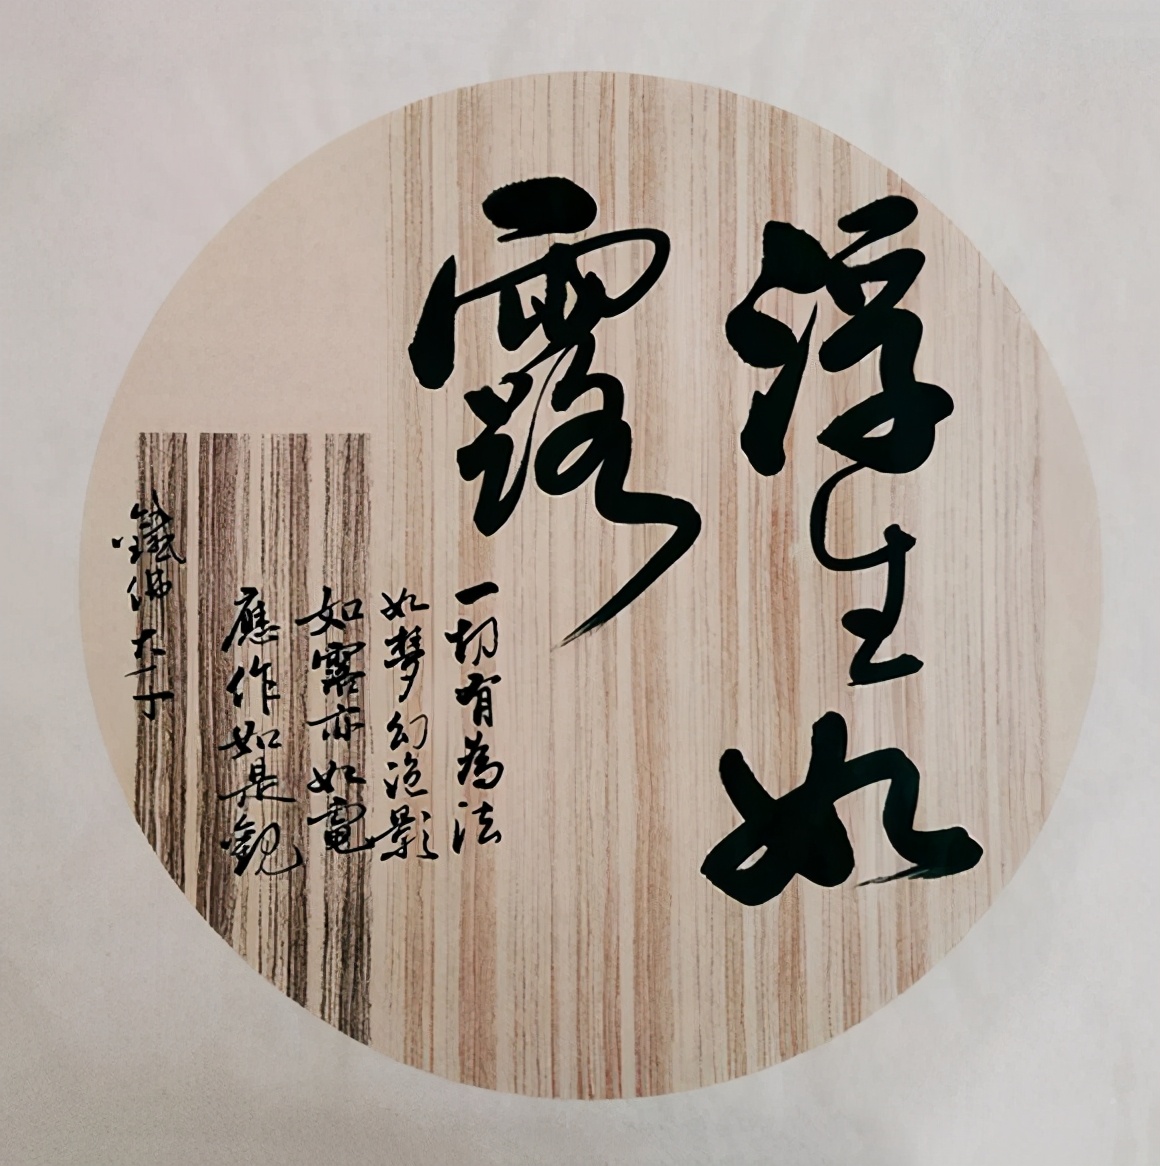 浮生如
露
一切有為法
如夢幻泡影
如露亦如電
應作如是觀
鐵佛